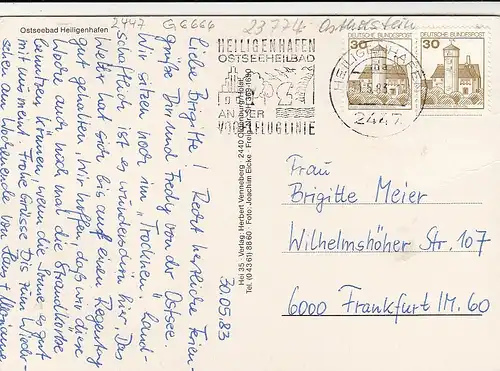 2447 G 6666 23774 Ostholstein
Ostseebad Heiligenhafen
HEILIGENHAFEN
OSTSEEHEILBAD
AN DER
VOGELFLUGLINIE
HEILIGENHAFEN
5.83
2447
30
30
Liebe Brigitte! Recht herzliche Ferien-
grüße Dir und Fredy von der Ostsee.
Wir sitzen noch im "Trocknen". Land-
schaftlich ist es wunderschön hier. Das
Wetter hat sich bis auf einen Regentag
gut gehalten. Wir hoffen, daß wir diese
Woche auch noch mal die Strandkörbe
benutzen können, wenn die Sonne es gut
mit uns meint. Frohe Grüsse Bis zum Wieder-
sehen am Wochenende von Marianne
30.05.83
Hei 35 - Verlag: Herbert Venneberg · 2440 Oldenburg/Holst.
Tel. (0 43 61) 88 60 · Foto: Joachim Eicke · Freig.
Frau
Brigitte Meier
Wilhelmshöher Str. 107
6000 Frankfurt/M. 60